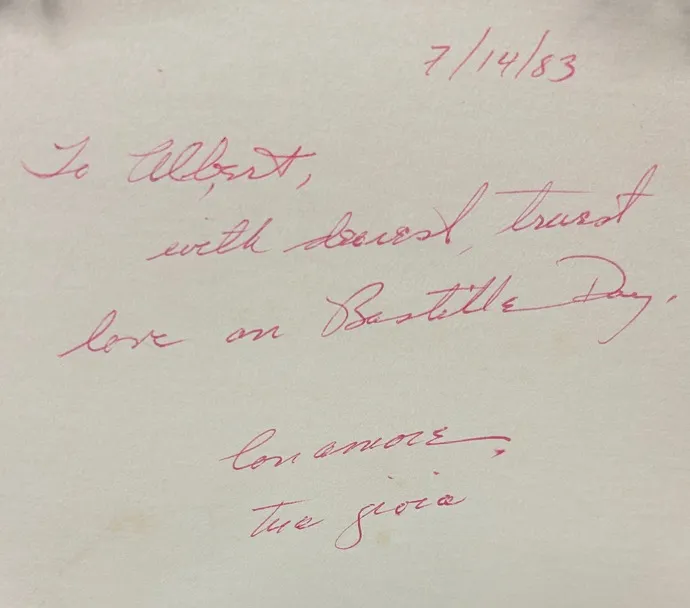 7/14/83
To Albert,
with dearest, truest
love on Bastille Day.
Con amore,
tua gioia